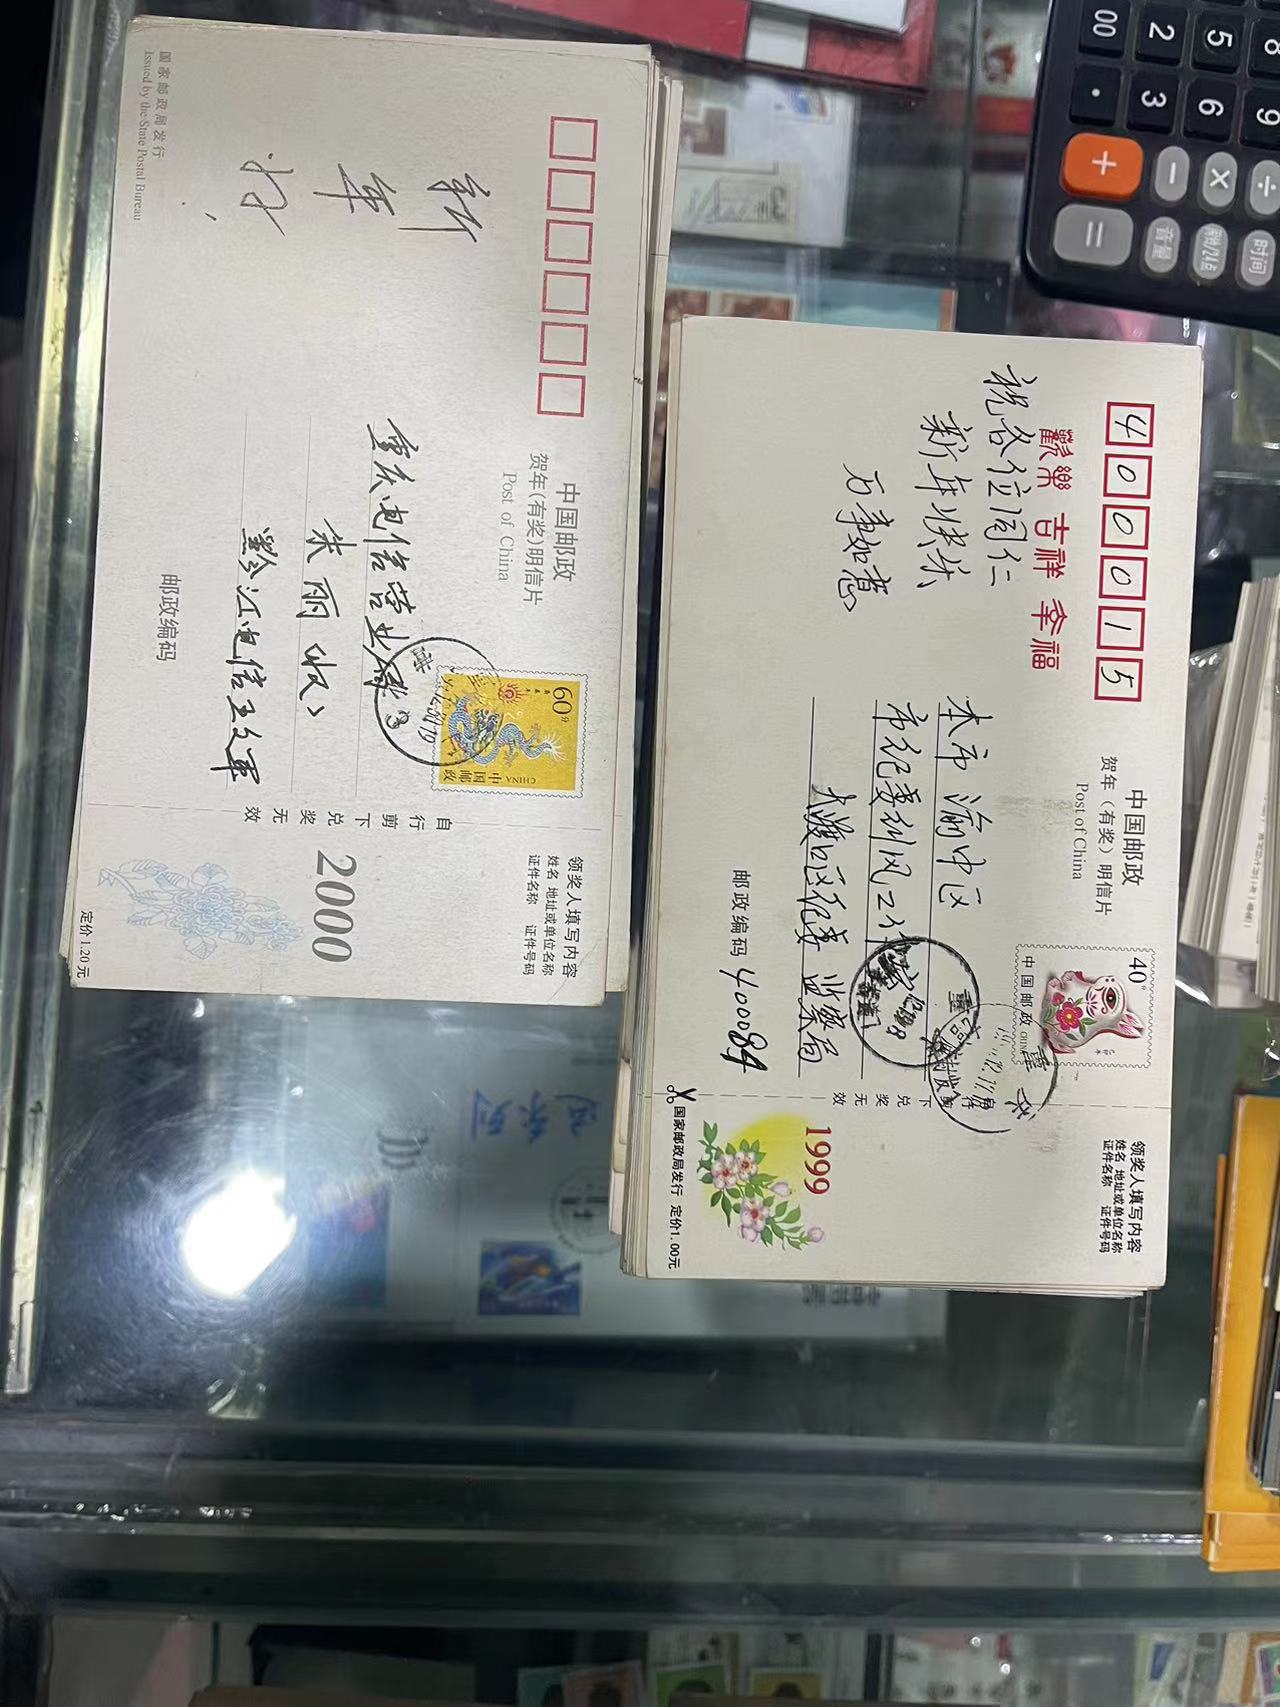 国家邮政局发行
Issued by the State Postal Bureau
新
年
好!
中国邮政
贺年(有奖)明信片
Post of China
重庆电信营业
朱丽 收
黔江电信王文军
邮政编码
60分
中国邮政
CHINA
自行剪下兑奖无效
领奖人填写内容
姓名 地址或单位名称
证件名称 证件号码
2000
定价1.20元
400015
歡樂 吉祥 幸福
祝各位同仁
新年快乐
万事如意
中国邮政
贺年(有奖)明信片
Post of China
本市渝中区
市纪委纠风
大渡口区纪委 监察局
邮政编码 400084
40分
中国邮政 CHINA
重庆
行剪下兑奖无效
领奖人填写内容
姓名 地址或单位名称
证件名称 证件号码
1999
国家邮政局发行 定价1.00元
00 2 5 8
· 3 6 9
+ − × ÷
= 音量 时间